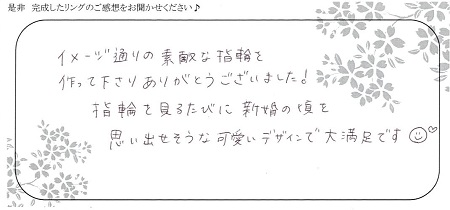 是非 完成したリングのご感想をお聞かせください♪
イメージ通りの素敵な指輪を
作って下さりありがとうございました!
指輪を見るたびに新婚の頃を
思い出せそうな可愛いデザインで大満足です